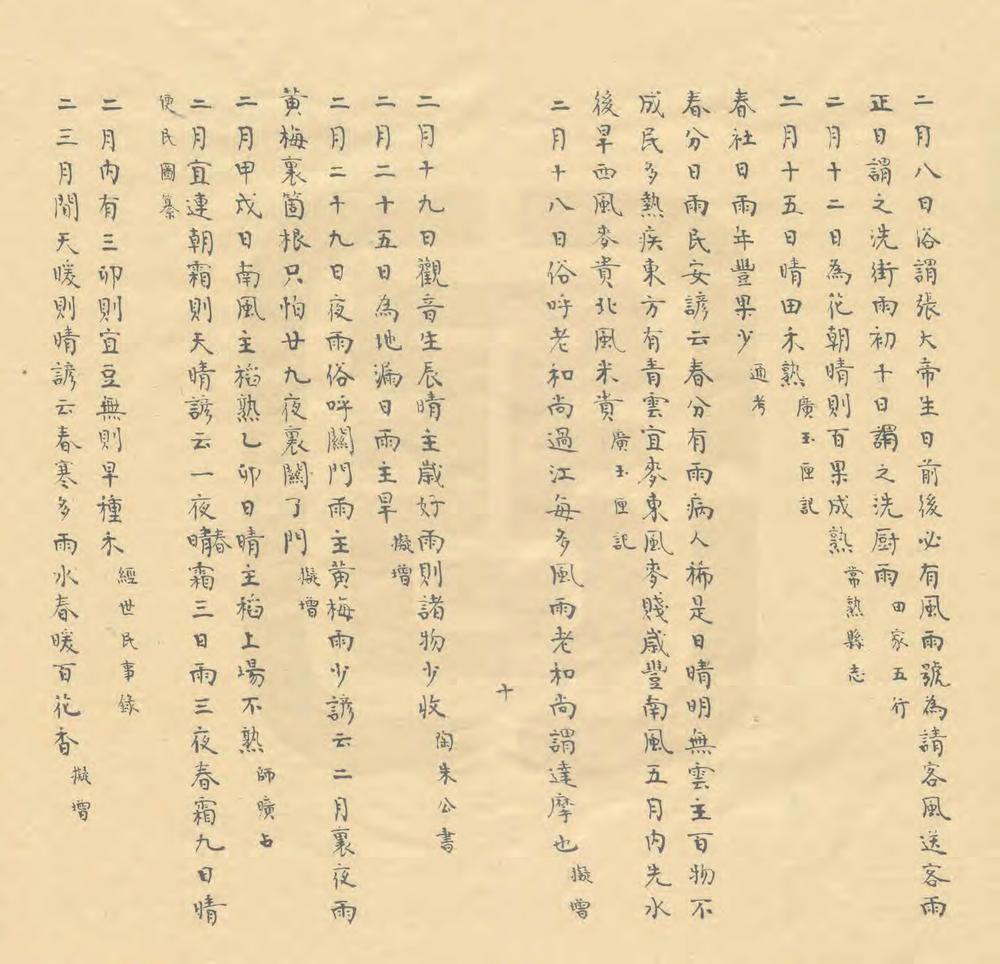 二月八日俗謂張大帝生日前後必有風雨號為請客風送客雨
正日謂之洗街雨初十日謂之洗厨雨 田家五行
二月十二日為花朝晴則百果成熟 常熟縣志
二月十五日晴田禾熟 廣玉匣記
春社日雨年豐果少 通考
春分日雨民安諺云春分有雨病人稀是日晴明無雲主百物不
成民多熱疾東方有青雲宜麥東風麥賤歲豐南風五月內先水
後旱西風麥貴北風米貴 廣玉匣記
二月十八日俗呼老和尚過江每多風雨老和尚謂達摩也 擬增
十
二月十九日觀音生辰晴主歲好雨則諸物少收 陶朱公書
二月二十五日為地漏日雨主旱 擬增
二月二十九日夜雨俗呼關門雨主黃梅雨少諺云二月裏夜雨
黃梅裏箇根只怕廿九夜裏關了門 擬增
二月甲戌日南風主稻熟乙卯日晴主稻上場不熟 師曠占
二月宜連朝霜則天晴諺云一夜春霜三日雨三夜春霜九日晴
便民圖纂
二月內有三卯則宜豆無則早種禾 經世民事錄
二三月間天暖則晴諺云春寒多雨水春暖百花香 擬增